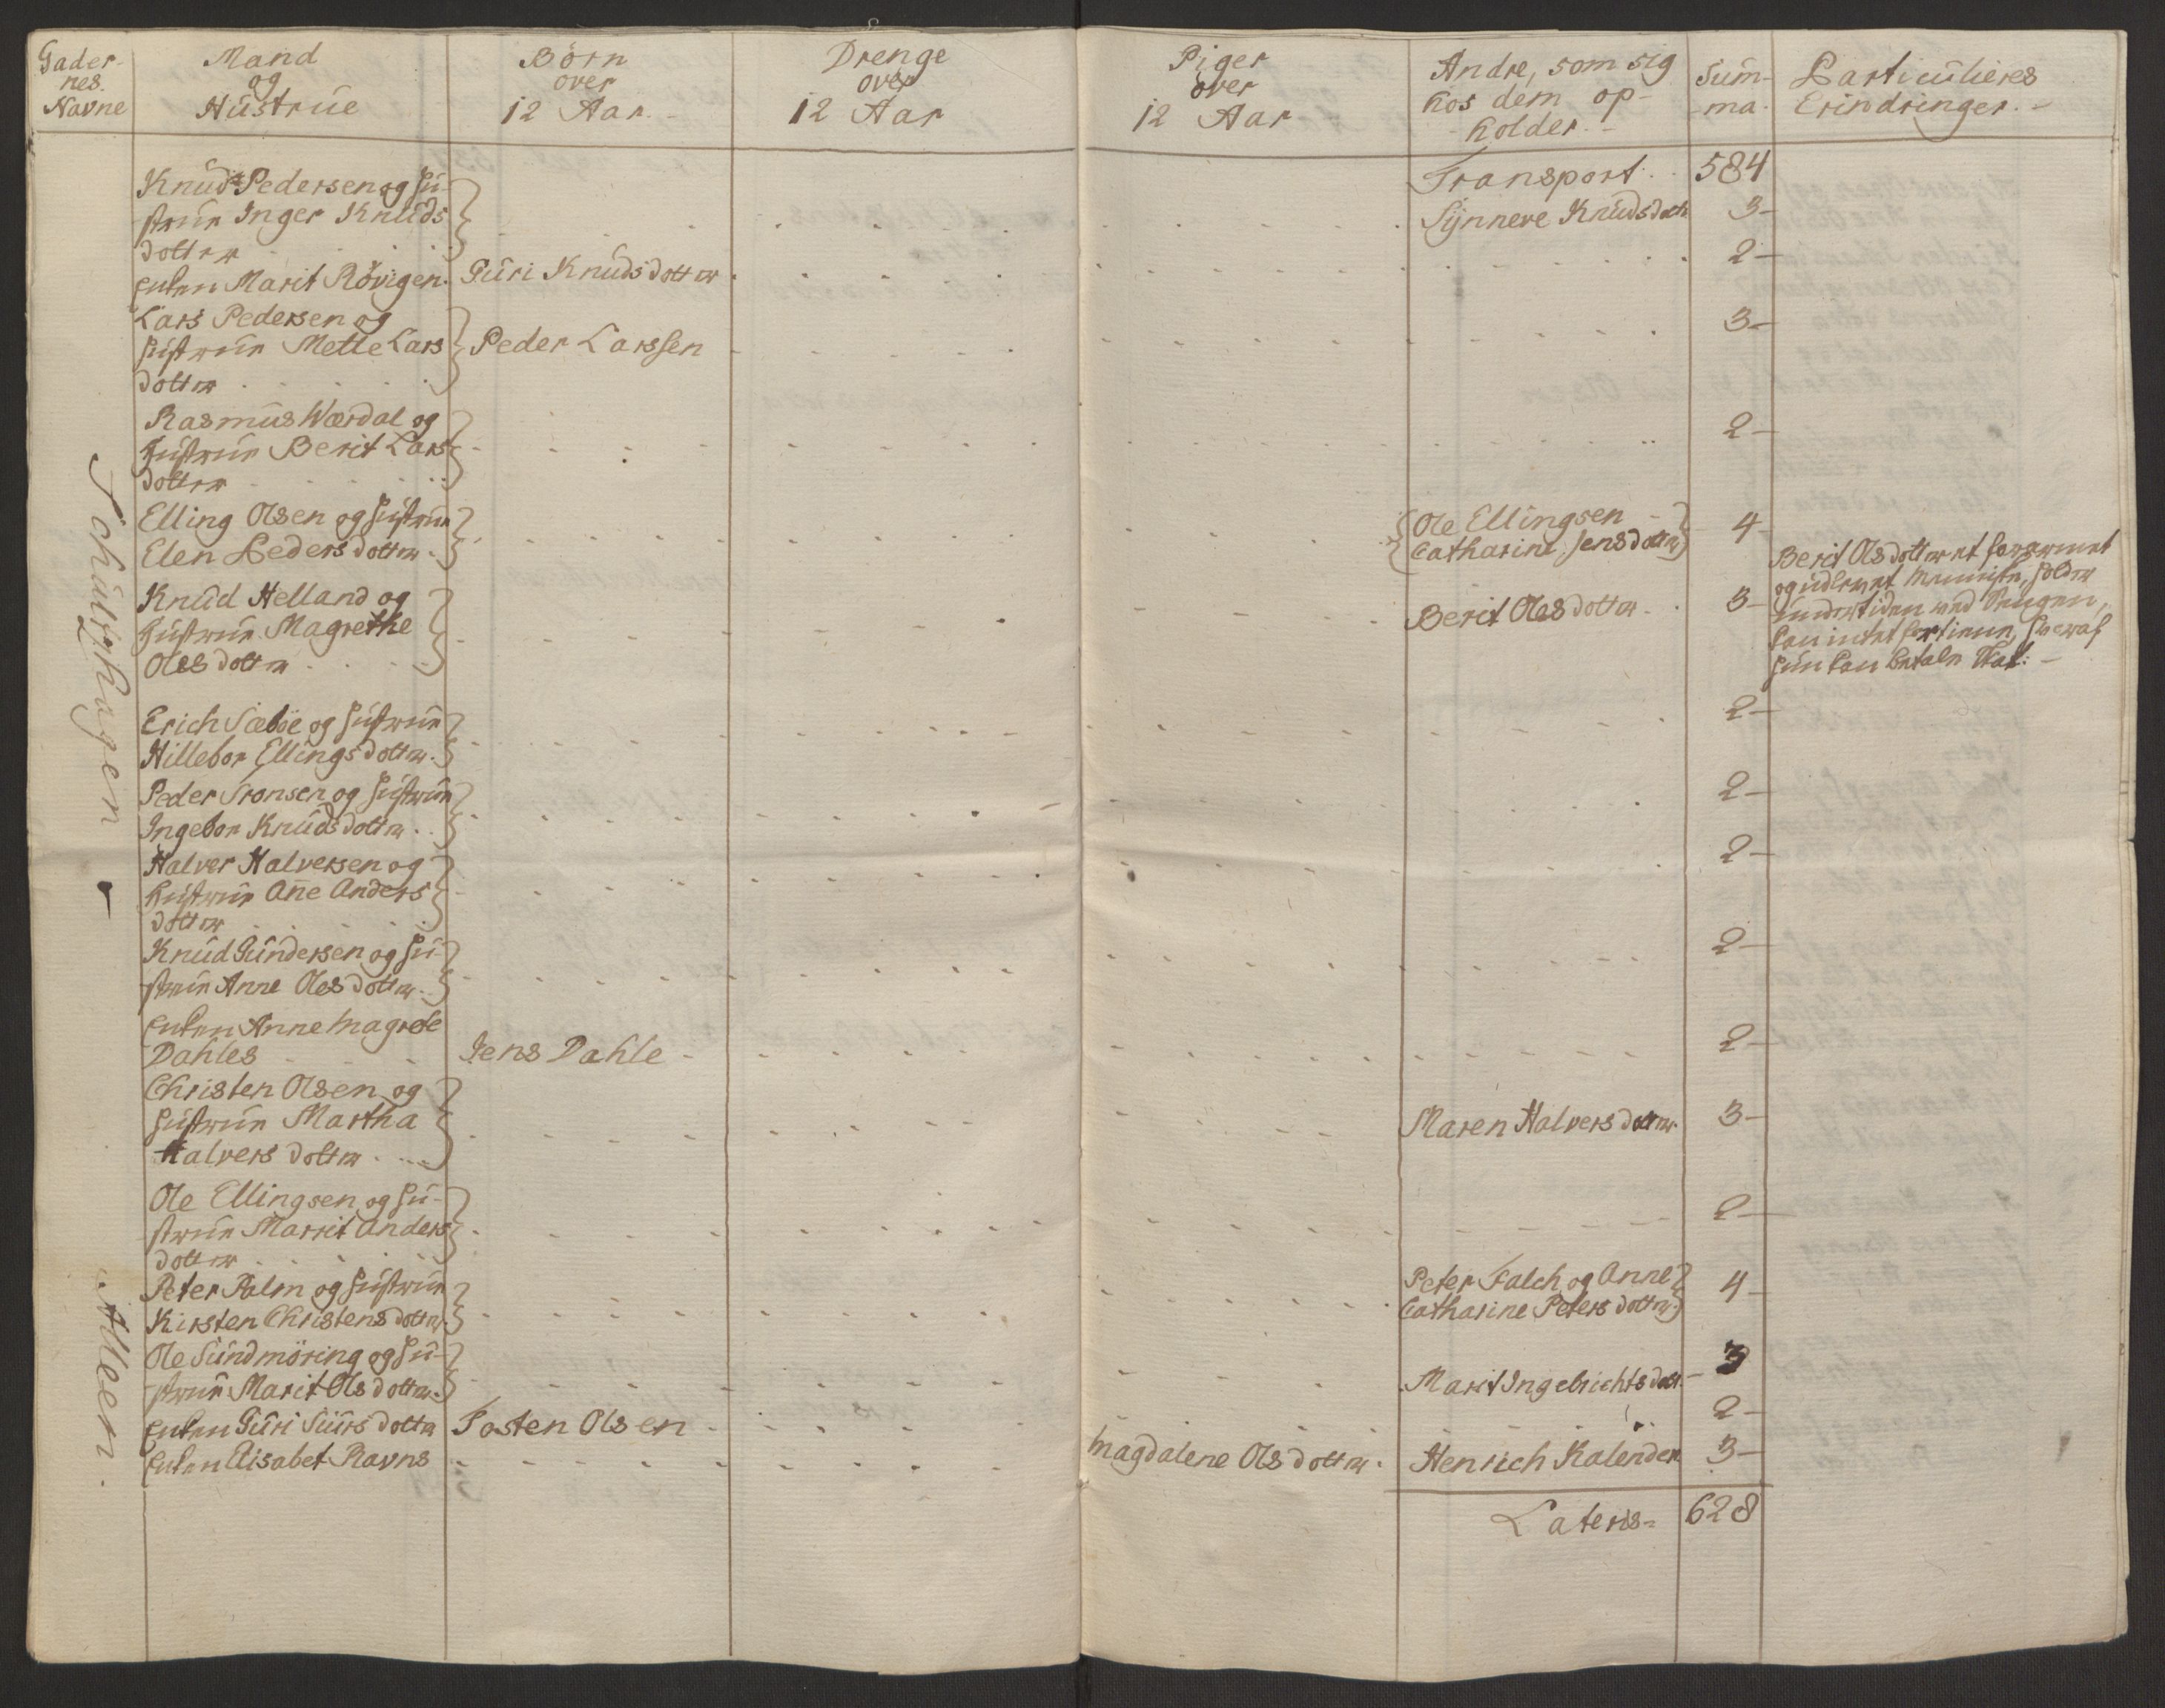 Gader-
nes
Navne
Mand
og
Hustrue
Børn
over
12 Aar.
Drenge
over
12 Aar
Piger
over
12 Aar
Andre, som sig
hos dem op-
holder.
Sum-
ma.
Particulieres
Erindringer.
Transport. 584
Knud Pedersen og Hu-
strue Inger Knuds
dotter
Synneve Knudsdott 3
Enken Marit Rövigen. Guri Knudsdotter 2
Lars Pedersen og
Hustrue Mette Lars
dotter
Peder Larssen 3
Rasmus Wærdal og
Hustrue Berit Lars
dotter
2
Elling Olsen og Hustrue
Elen Peders dotter
Ole Ellingsen
Catharine Jensdotter
4
Knud Helland og
Hustrue Magrethe
Oles dotter
Berit Olesdotter 3
Berit Olsdotter et forarmet
og udlevet Menniske, holder
undertiden ved Sengen,
kan intet fortiene, hvoraf
hun kan betale Skat.
Schultzhagen
Erich Sæböe og Hustrue
Hillebor Ellingsdotter
2
Peder Sronsen og Hustrue
Ingebor Knudsdotter
2
Halver Halversen og
Hustrue Ane Anders
dotter
2
Knud Gundersen og Hu-
strue Anne Olesdotter
2
Enken Anne Magrete
Dahles
Jens Dahle 2
Christen Olsen og
Hustrue Martha
Halvers dotter
Maren Halversdotter 3
Ole Ellingsen og Hu-
strue Marrit Anders
dotter
2
Alleen.
Peter Palm og Hustrue
Kirsten Christensdotter
Peter Falch og Anne
Catharine Petersdotter
4
Ole Sundmöring og Hu-
strue Marit Olsdotter
Marit Ingebrichtsdatt. 3
Enken Guri Siursdotter Tosten Olsen 2
Enken Elisabet Ravns Magdalene Olsdotter Henrich Kalender 3
Lateris 628